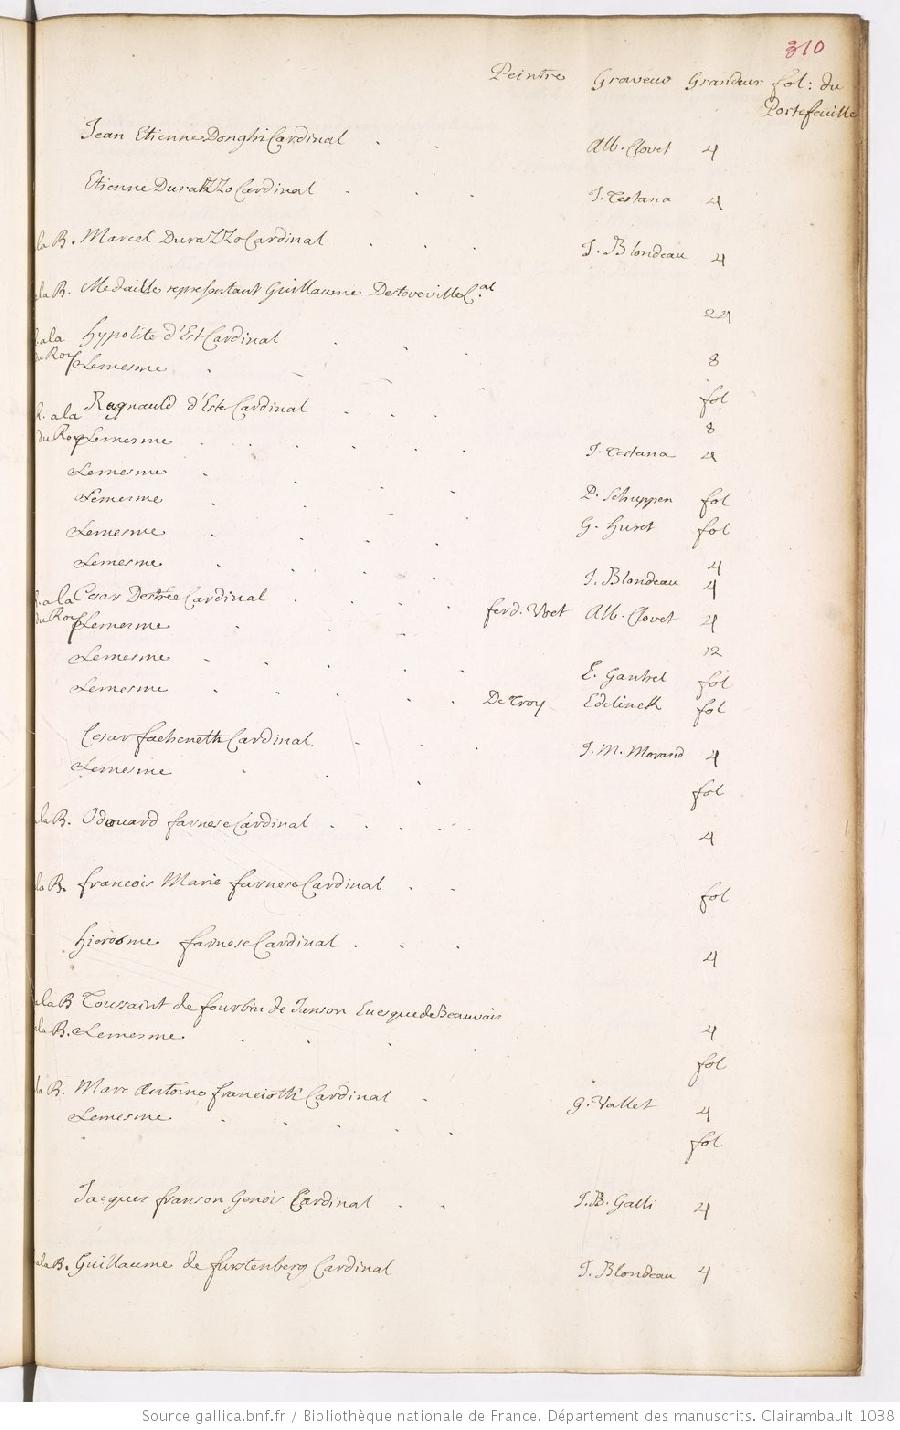 310
Peintre Graveur Grandeur fol: du
Portefeuille
Jean Etienne Donghi Cardinal . Alb. Clovet 4
Etienne Durazzo Cardinal . . . J. Testana 4
la B. Marcel Durazzo Cardinal . . . J. Blondeau 4
la B. Medaille representant Guillaume Destoreville C.al
24
a la Hypolite d'Est Cardinal . . .
du Roy Lemesme . 8
fol
R. a la Regnauld d'Este Cardinal . . .
8
du Roy Lemesme . . . . . . J. Testana 4
Lemesme . . . .
Lemesme . . . . P. Schuppen fol
Lemesme . . . . G. Huret fol
Lemesme . . . . 4
J. Blondeau 4
R. a la Cesar Destrée Cardinal . . . . ferd. Voet Alb. Clovet 4
du Roy Lemesme . . .
12
Lemesme . . . . E. Gantrel fol
Lemesme . . . . De Troy Edelinck fol
Cesar fachenetti Cardinal . . . J. M. Morand 4
Lemesme . . fol
la B. Odouard farnese Cardinal . . . . 4
la B. francois Marie farnese Cardinal . . fol
hierosme farnese Cardinal . . . 4
a la B Toussaint de fourbin de Janson Evesque de Beauvais
la B. Lemesme . . . . 4
fol
la B. Marc Antoine franciotti Cardinal . G. Vallet 4
Lemesme . . . . . fol
Jacques franson Genois Cardinal . . J. B. Galli 4
a la B. Guillaume de furstenberg Cardinal J. Blondeau 4
Source gallica.bnf.fr / Bibliothèque nationale de France. Département des manuscrits. Clairambault 1038